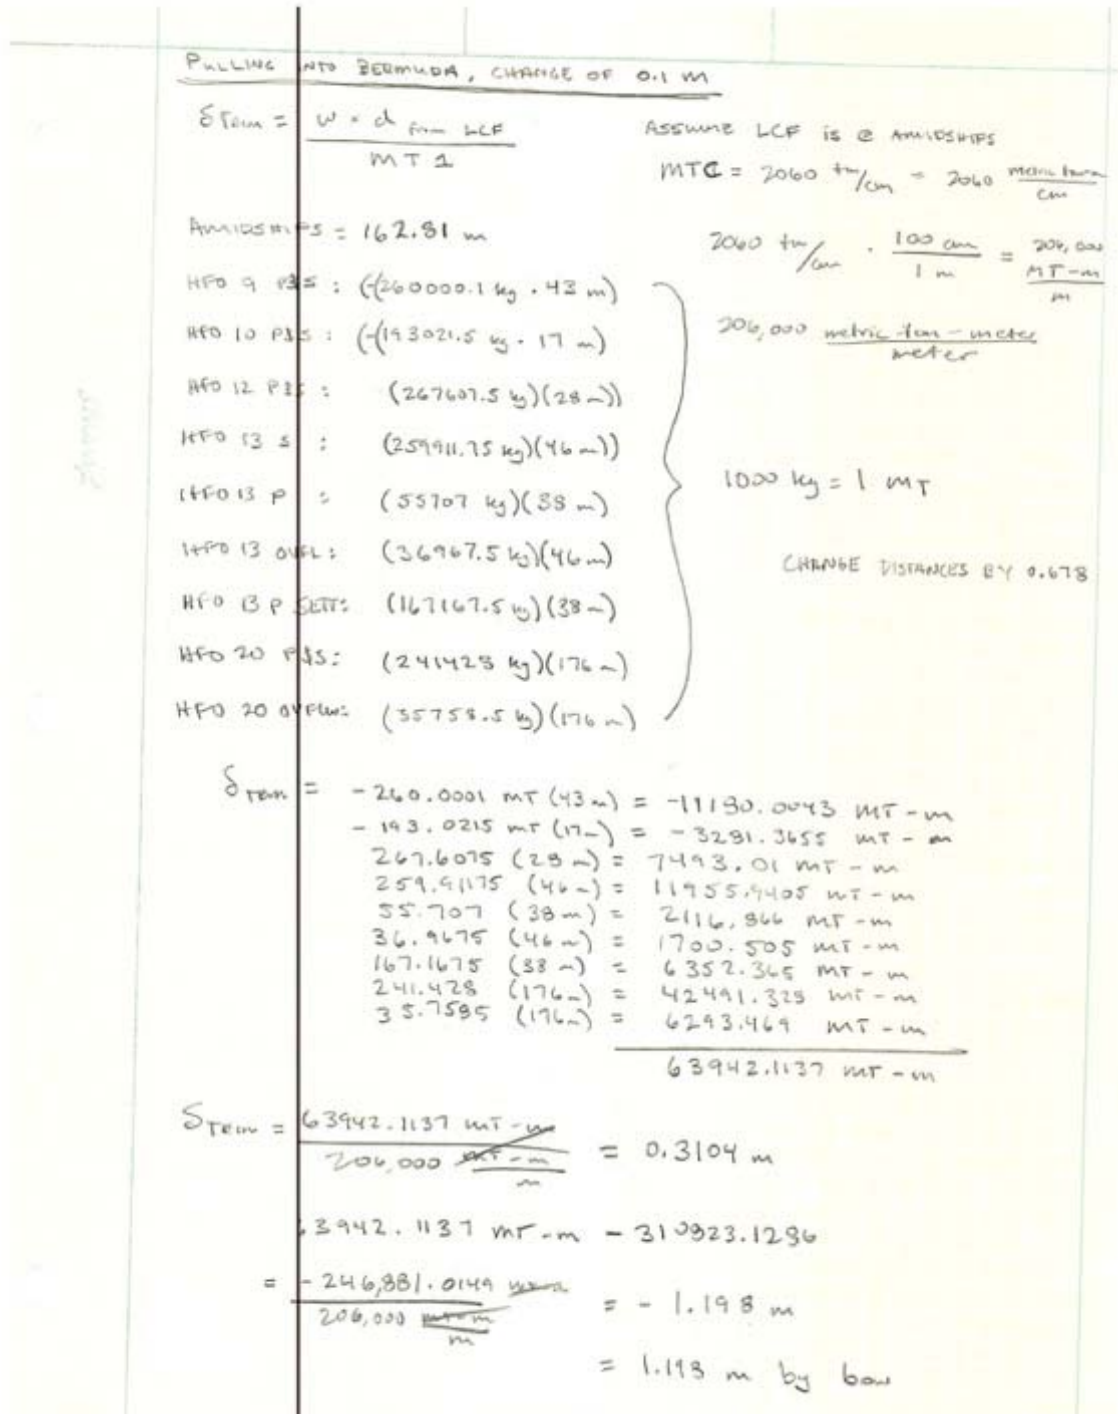 PULLING INTO BERMUDA, CHANGE OF 0.1 M
δTrim = w · d from LCF / MT 1
ASSUME LCF is @ AMIDSHIPS
MTC = 2060 tm/cm = 2060 metric tonm / cm
AMIDSHIPS = 162.81 m
2060 tm/cm · 100 cm / 1 m = 206,000 MT-m / m
HFO 9 P&S : (-(260000.1 kg · 43 m)
HFO 10 P&S : (-(193021.5 kg · 17 m)
206,000 metric-ton-meter / meter
HFO 12 P&S : (267607.5 kg)(28 m))
HFO 13 S : (259911.75 kg)(46 m))
HFO 13 P : (55707 kg)(38 m)
1000 kg = 1 MT
HFO 13 OVFL: (36967.5 kg)(46 m)
CHANGE DISTANCES BY 0.678
HFO 13 P SETT: (167167.5 kg)(38 m)
HFO 20 P&S: (241428 kg)(176 m)
HFO 20 OVFLW: (35758.5 kg)(176 m)
δTRIM = - 260.0001 MT (43 m) = -11180.0043 MT-m
- 193.0215 MT (17 m) = -3281.3655 MT-m
267.6075 (28 m) = 7493.01 MT-m
259.91175 (46 m) = 11955.9405 MT-m
55.707 (38 m) = 2116.866 MT-m
36.9675 (46 m) = 1700.505 MT-m
167.1675 (38 m) = 6352.365 MT-m
241.428 (176 m) = 42491.328 MT-m
35.7585 (176 m) = 6293.469 MT-m
63942.1137 MT-m
δTRIM = 63942.1137 MT-m / 206,000 MT-m / m = 0.3104 m
3942.1137 MT-m - 310823.1286
= - 246,881.0149 / 206,000 MT-m / m = - 1.198 m
= 1.198 m by bow